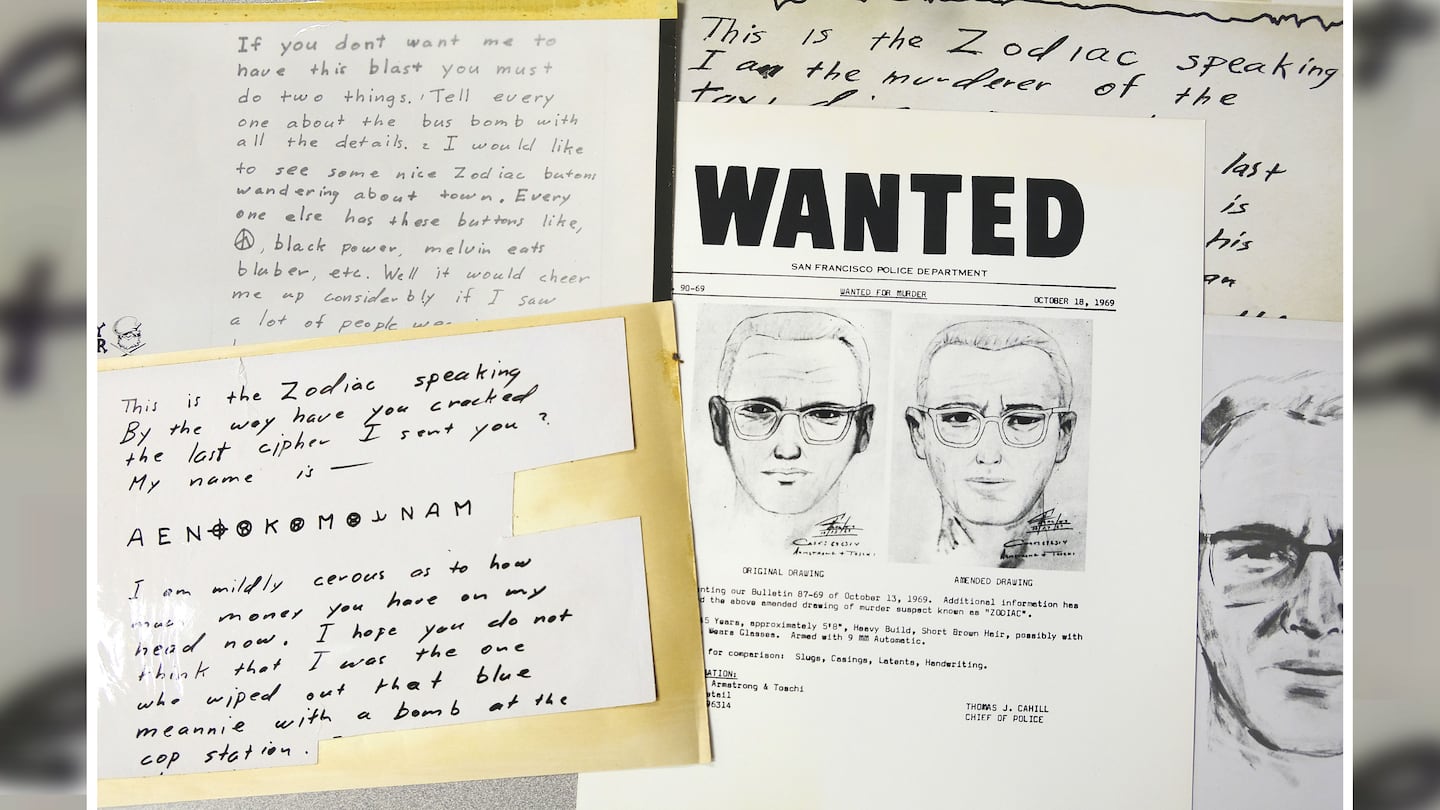 If you dont want me to
have this blast you must
do two things. 1 Tell every
one about the bus bomb with
all the details. 2 I would like
to see some nice Zodiac butons
wandering about town. Every
one else has these buttons like,
☮, black power, melvin eats
bluber, etc. Well it would cheer
me up considerbly if I saw
a lot of people
This is the Zodiac speaking
By the way have you cracked
the last cipher I sent you ?
My name is —
A E N ⌖ K M NAM
I am mildly cerous as to how
much money you have on my
head now. I hope you do not
think that I was the one
who wiped out that blue
meannie with a bomb at the
cop station.
This is the Zodiac speaking
I am the murderer of the
last
is
his
an
WANTED
SAN FRANCISCO POLICE DEPARTMENT
90-69 WANTED FOR MURDER OCTOBER 18, 1969
ORIGINAL DRAWING AMENDED DRAWING
nting our Bulletin 87-69 of October 13, 1969. Additional information has
d the above amended drawing of murder suspect known as "ZODIAC".
5 Years, approximately 5'8", Heavy Build, Short Brown Hair, possibly with
Wears Glasses. Armed with 9 MM Automatic.
for comparison: Slugs, Casings, Latents, Handwriting.
ATION:
Armstrong & Toschi
etail
96314
THOMAS J. CAHILL
CHIEF OF POLICE